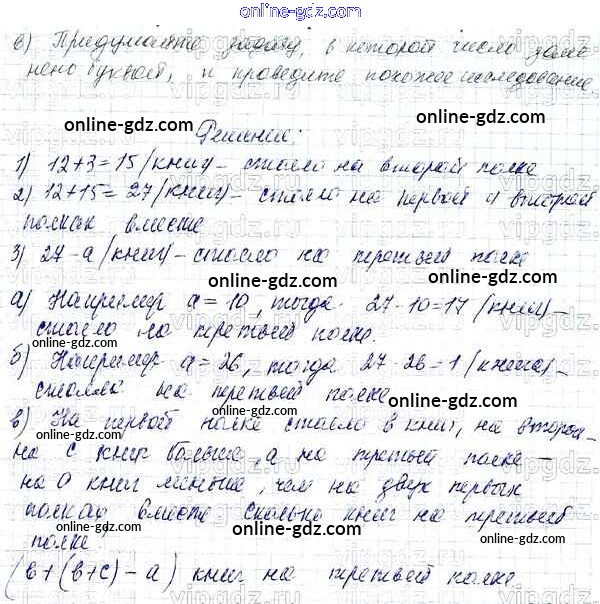 online-gdz.com
в) Придумайте задачу, в которой число заме
нено буквой, и проведите похожее исследование.
online-gdz.com online-gdz.com
Решение:
1) 12+3=15 (книг) - стояло на второй полке
online-gdz.com online-gdz.com
2) 12+15=27 (книг) - стояло на первой и второй
полках вместе
3) 27-а (книг) - стояло на третьей полке
online-gdz.com online-gdz.com
а) Например а=10, тогда 27-10=17 (книг) -
стояло на третьей полке.
online-gdz.com
б) Например а=26, тогда 27-26=1 (книга) -
online-gdz.com online-gdz.com
стояла на третьей полке
в) На первой полке стояло в книг, на второй -
online-gdz.com
на с книг больше, а на третьей полке -
на а книг меньше, чем на двух первых
online-gdz.com online-gdz.com
полках вместе сколько книг на третьей
полке.
online-gdz.com
(в+(в+с)-а) книг на третьей полке
online-gdz.com